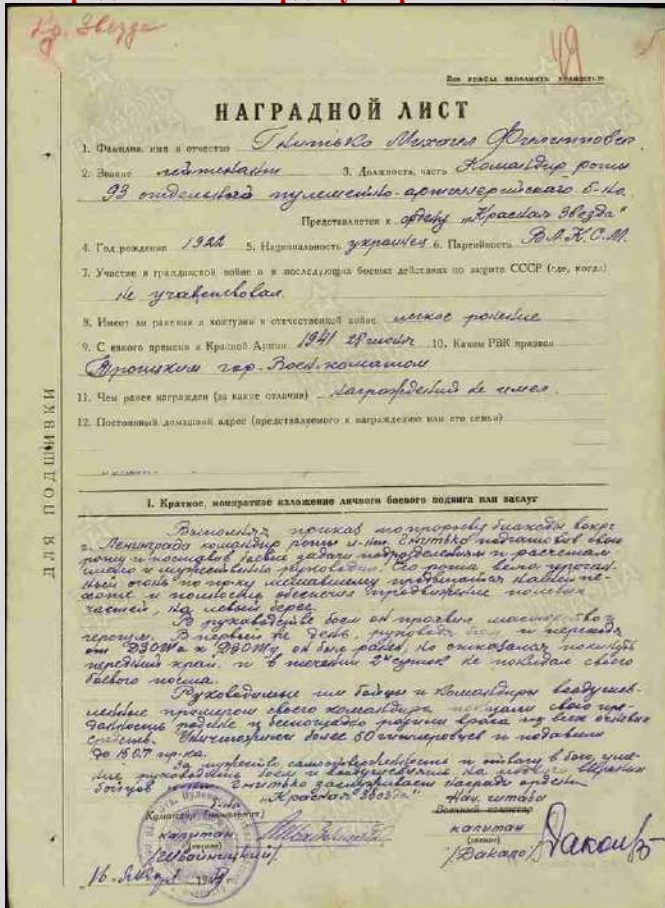 Кр. Звезда
49
Все графы заполнять полностью
НАГРАДНОЙ ЛИСТ
1. Фамилия, имя и отчество Гнитько Михаил Филиппович
2. Звание лейтенант 3. Должность, часть Командир роты
93 отдельного пулеметно-артиллерийского б-на
Представляется к ордену „Красная Звезда"
4. Год рождения 1922 5. Национальность украинец 6. Партийность В.Л.К.С.М.
7. Участие в гражданской войне и в последующих боевых действиях по защите СССР (где, когда)
не участвовал
8. Имеет ли ранения и контузии в отечественной войне легкое ранение
9. С какого времени в Красной Армии 1941 28 10. Каким РВК призван
Троицким гор. Военкоматом
11. Чем ранее награжден (за какие отличия) награждений не имел.
12. Постоянный домашний адрес (представляемого к награждению или его семьи)
ДЛЯ ПОДШИВКИ
I. Краткое, конкретное изложение личного боевого подвига или заслуг
Выполняя приказ по прорыву блокады вокруг
г. Ленинграда командир роты л-нт. Гнитько подготовив свою
роту и поставив боевые задачи подразделениям и расчетам
умело и мужественно руководил. Его рота вела ураган-
ный огонь по пр-ку мешавшему продвигаться нашей пе-
хоте и полностью обеспечил продвижение полевых
частей, на левый берег.
В руководстве боем он проявил мастерство и
героизм. В первый же день, руководя боем и переходя
от ДЗОТа к ДЗОТу он был ранен, но отказался покинуть
передний край. и в течении 2х суток не покидал своего
боевого поста.
Руководимые им бойцы и командиры воодушев-
ленные примером своего командира показали свою пре-
данность родине и беспощадно разили врага из всех огневых
средств. Уничтожили более 50 гитлеровцев и подавили
до 15 О.Т. пр-ка.
За мужество самоотверженность и отвагу в бою, уме-
ние руководить боем и воодушевлять на подвиги вверенных
бойцов Гнитько заслуживает награды ордена
„Красная Звезда"
Командир б-на
капитан
(звание)
/Швойницкий/
Нач. штаба
Военный комиссар
капитан
(звание)
/Дакало/
16 января 1943